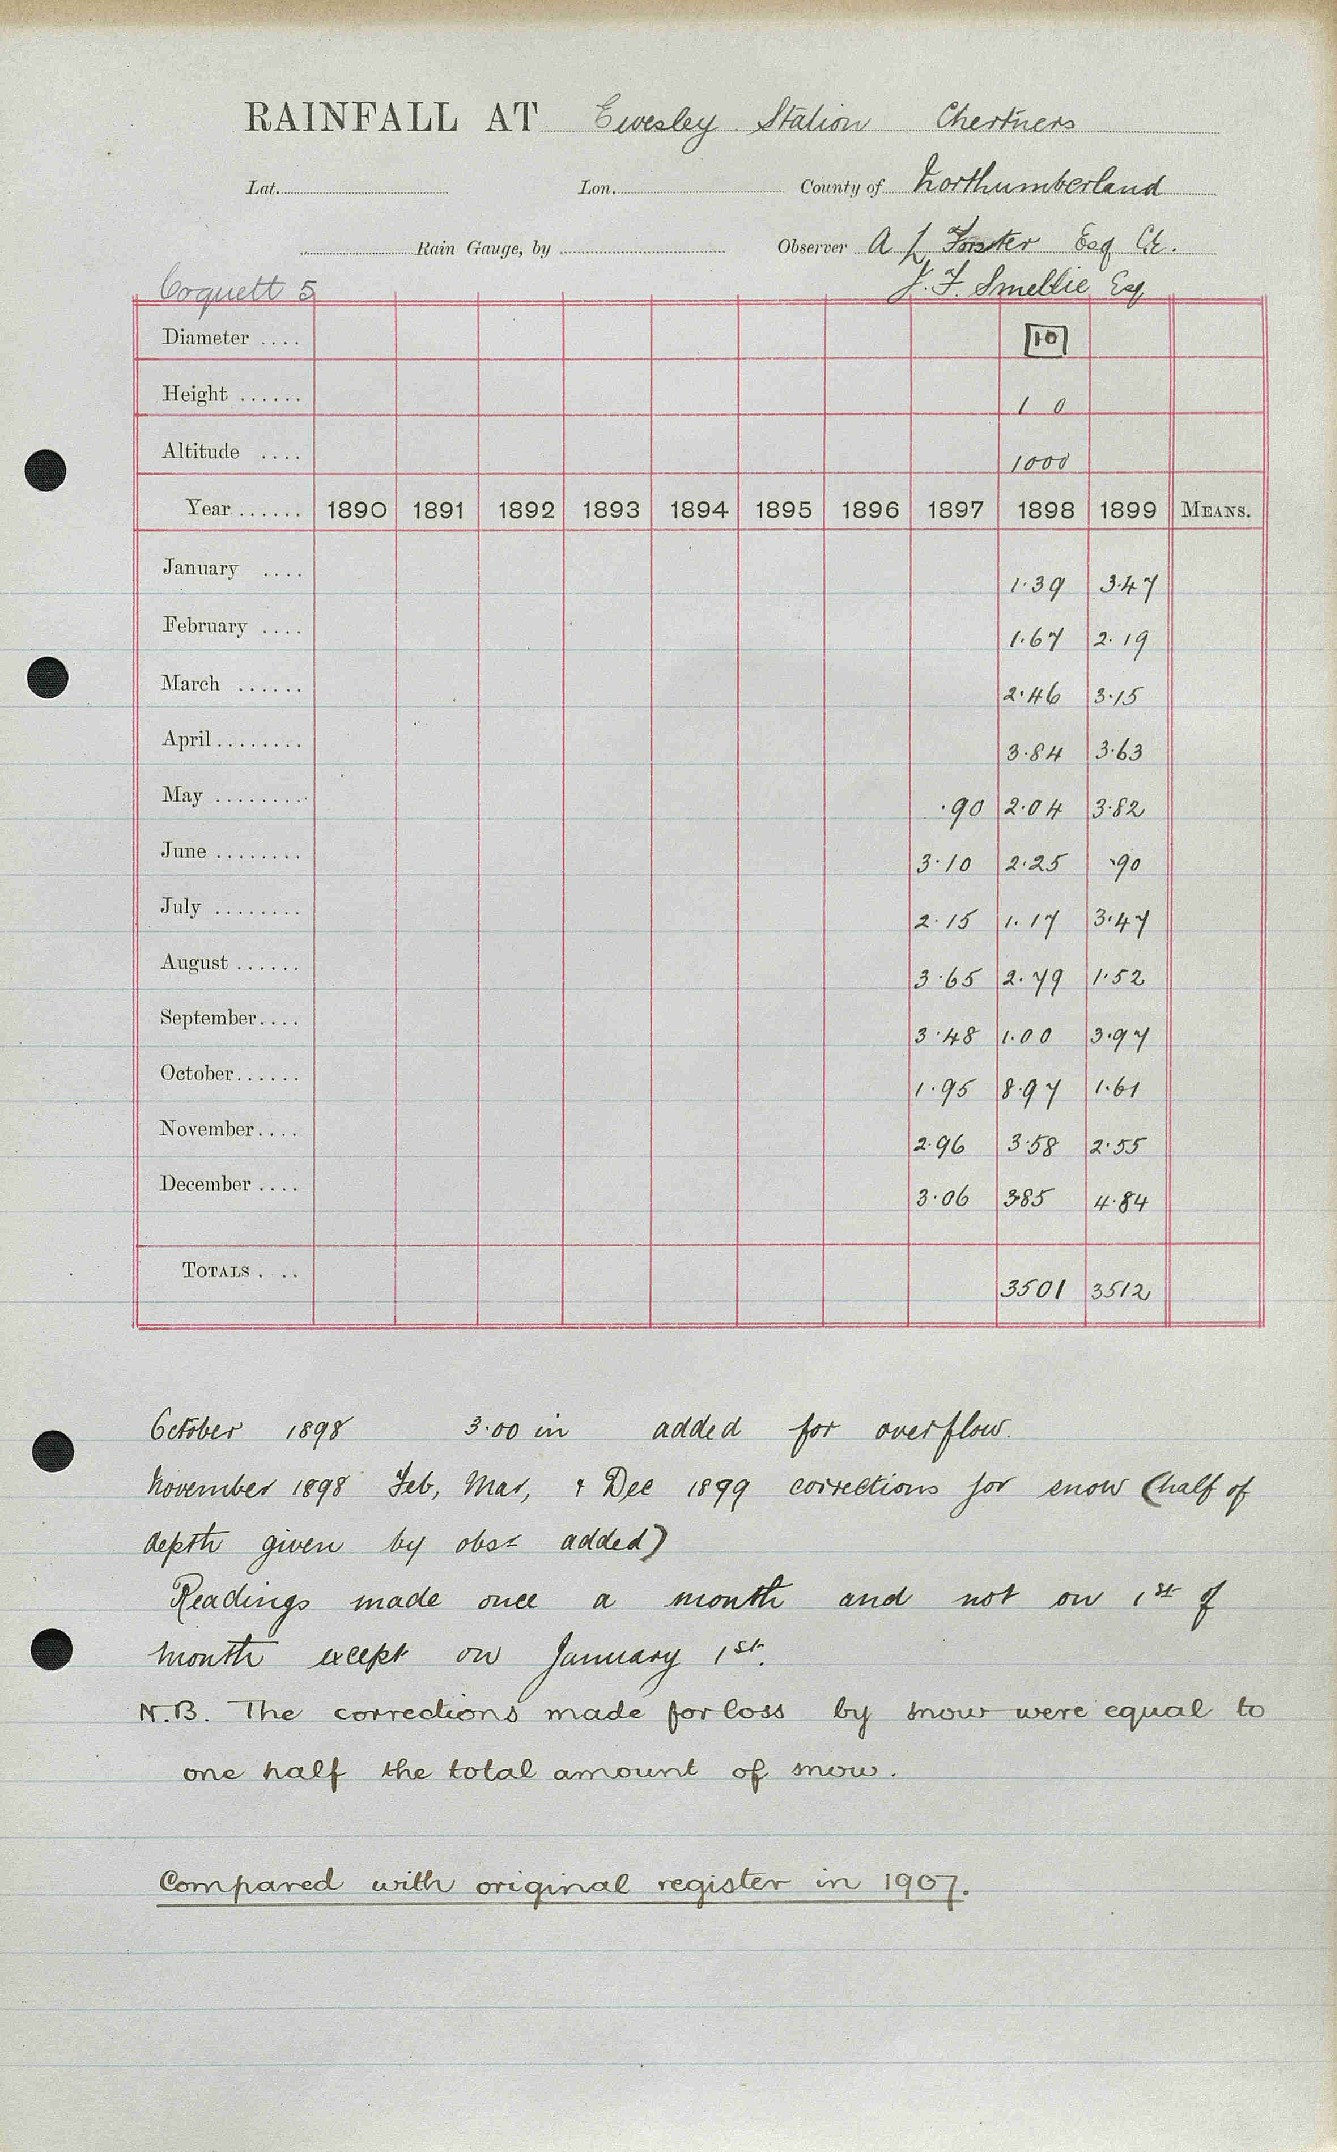 RAINFALL AT Ewesley Station Chertners
Lat. Lon. County of Northumberland
Rain Gauge, by Observer A L Forster Esq CE.
Coquett 5 J. F. Smellie Esq
Diameter .... 10
Height ...... 1 0
Altitude .... 1000
Year ...... 1890 1891 1892 1893 1894 1895 1896 1897 1898 1899 MEANS.
January .... 1.39 3.47
February .... 1.67 2.19
March ...... 2.46 3.15
April ........ 3.84 3.63
May ......... .90 2.04 3.82
June ........ 3.10 2.25 .90
July ........ 2.15 1.17 3.47
August ...... 3.65 2.79 1.52
September.... 3.48 1.00 3.97
October...... 1.95 8.97 1.61
November.... 2.96 3.58 2.55
December .... 3.06 385 4.84
TOTALS . .. 3501 3512
October 1898 3.00 in added for overflow.
November 1898 Feb, Mar, & Dec 1899 corrections for snow (half of
depth given by obsr added)
Readings made once a month and not on 1st of
month except on January 1st.
N.B. The corrections made for loss by snow were equal to
one half the total amount of snow.
Compared with original register in 1907.